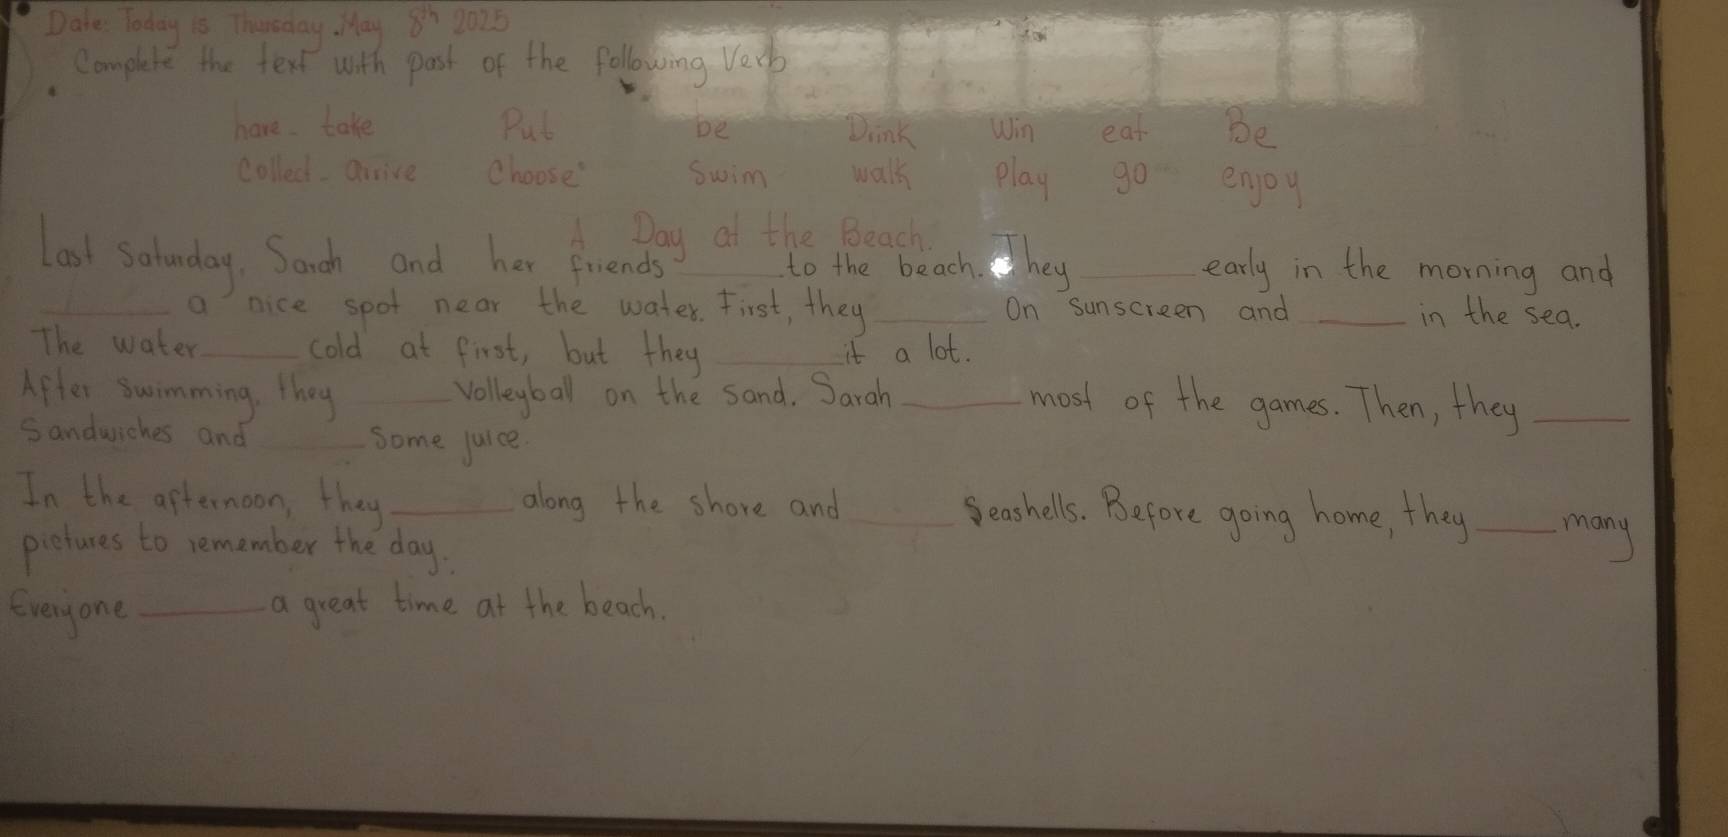 Date: Today is Thursday. May 8th 2025
Complete the text with past of the following Verb
have - take Put be Drink Win eat Be
Collect - arrive Choose Swim walk Play go enjoy
A Day at the Beach.
Last Saturday, Sarah and her friends ______ to the beach. They ______ early in the morning and
______ a nice spot near the water. First, they ______ On sunscreen and ______ in the sea.
The water ______ cold at first, but they ______ it a lot.
After swimming, they ______ Volleyball on the sand. Sarah ______ most of the games. Then, they ______
Sandwiches and ______ some juice.
In the afternoon, they ______ along the shore and ______ Seashells. Before going home, they ______ many
pictures to remember the day.
Everyone ______ a great time at the beach.